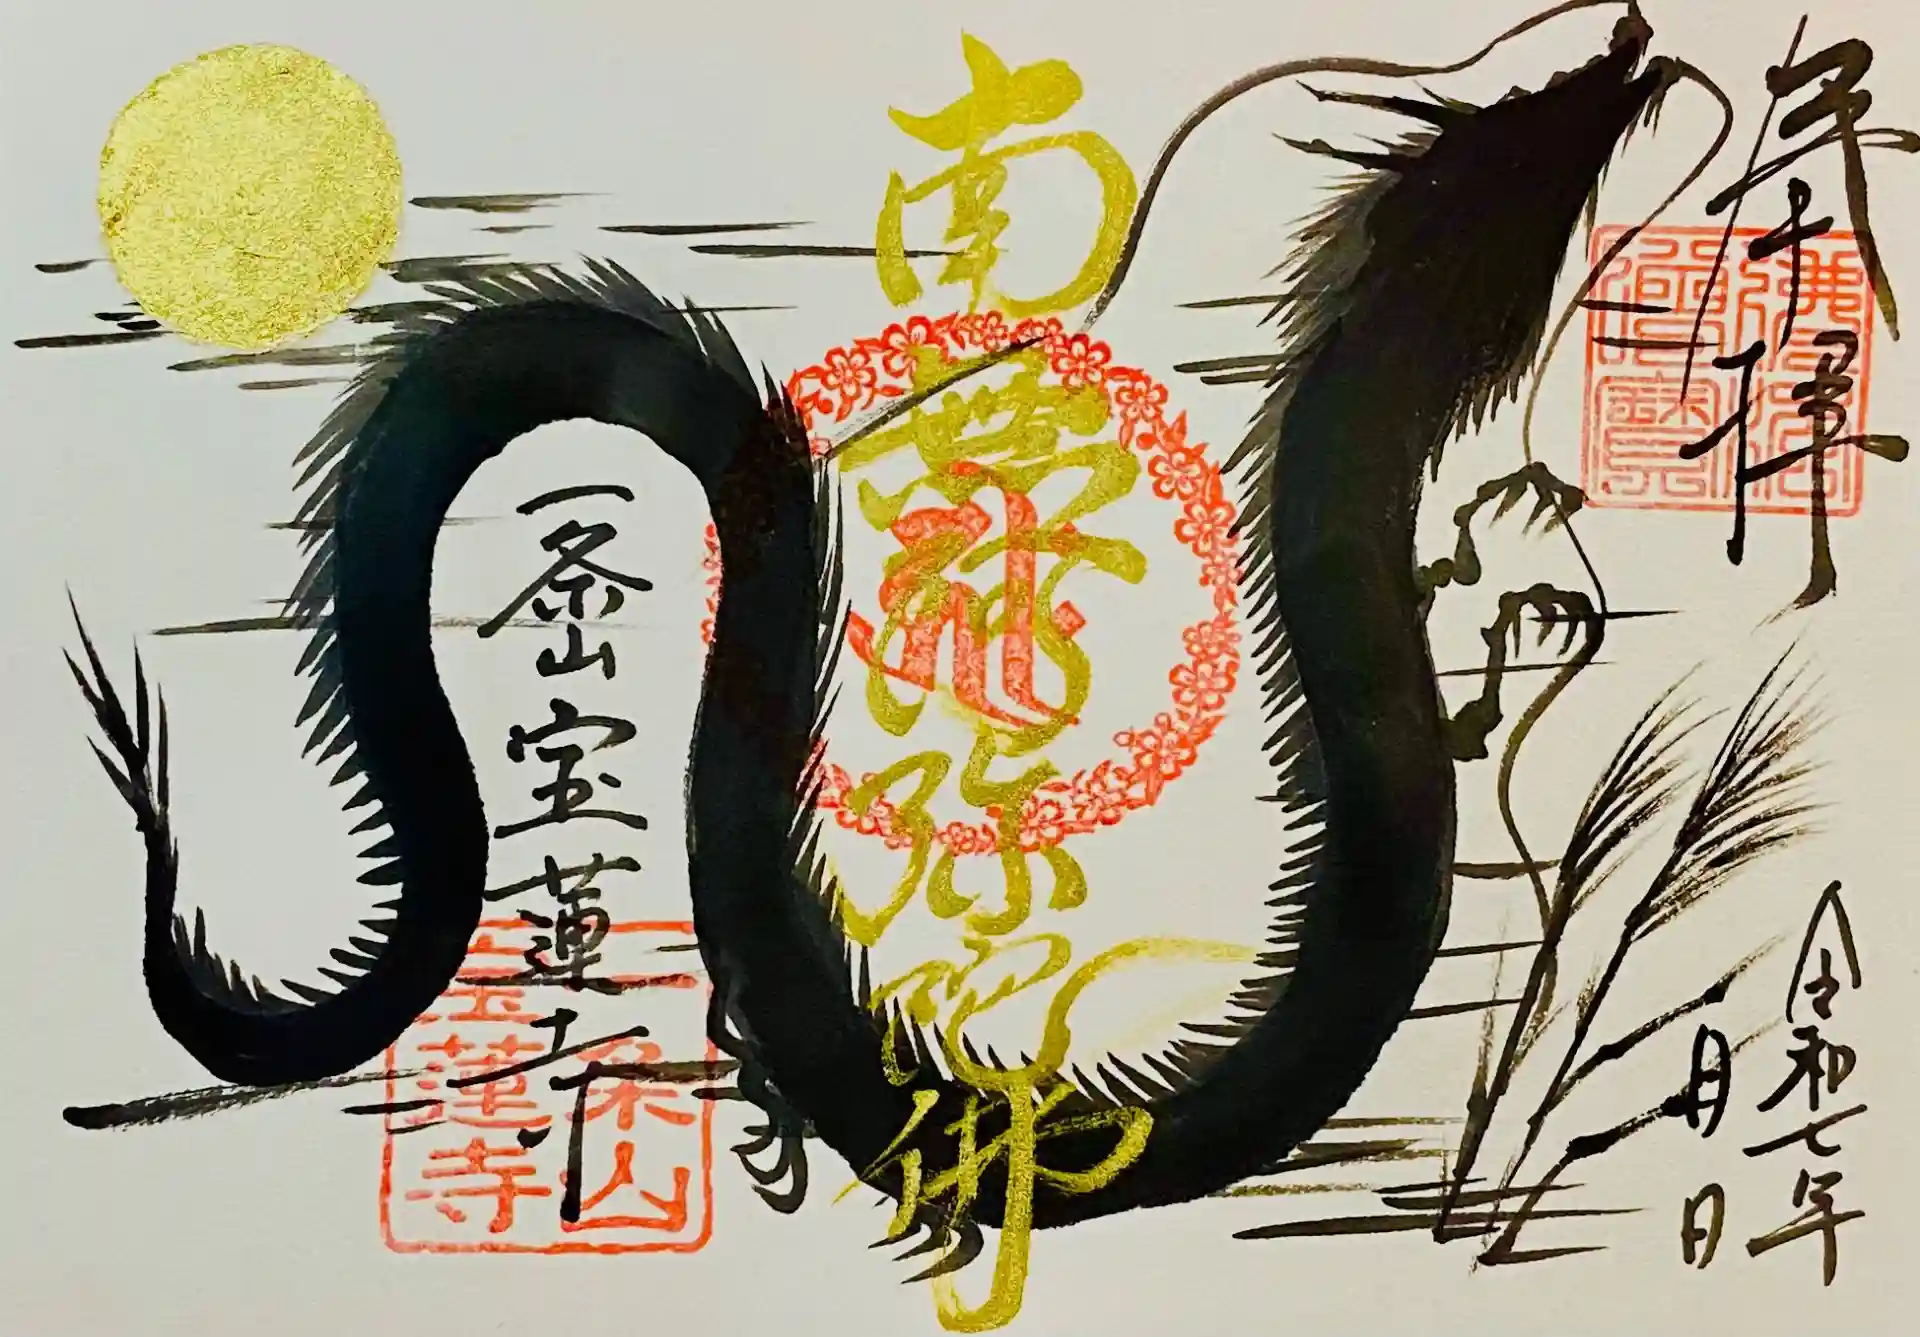 奉拝
佛法
僧寶
令和七年
月　日
南無阿弥陀佛
一条山宝蓮寺
一条山
宝蓮寺